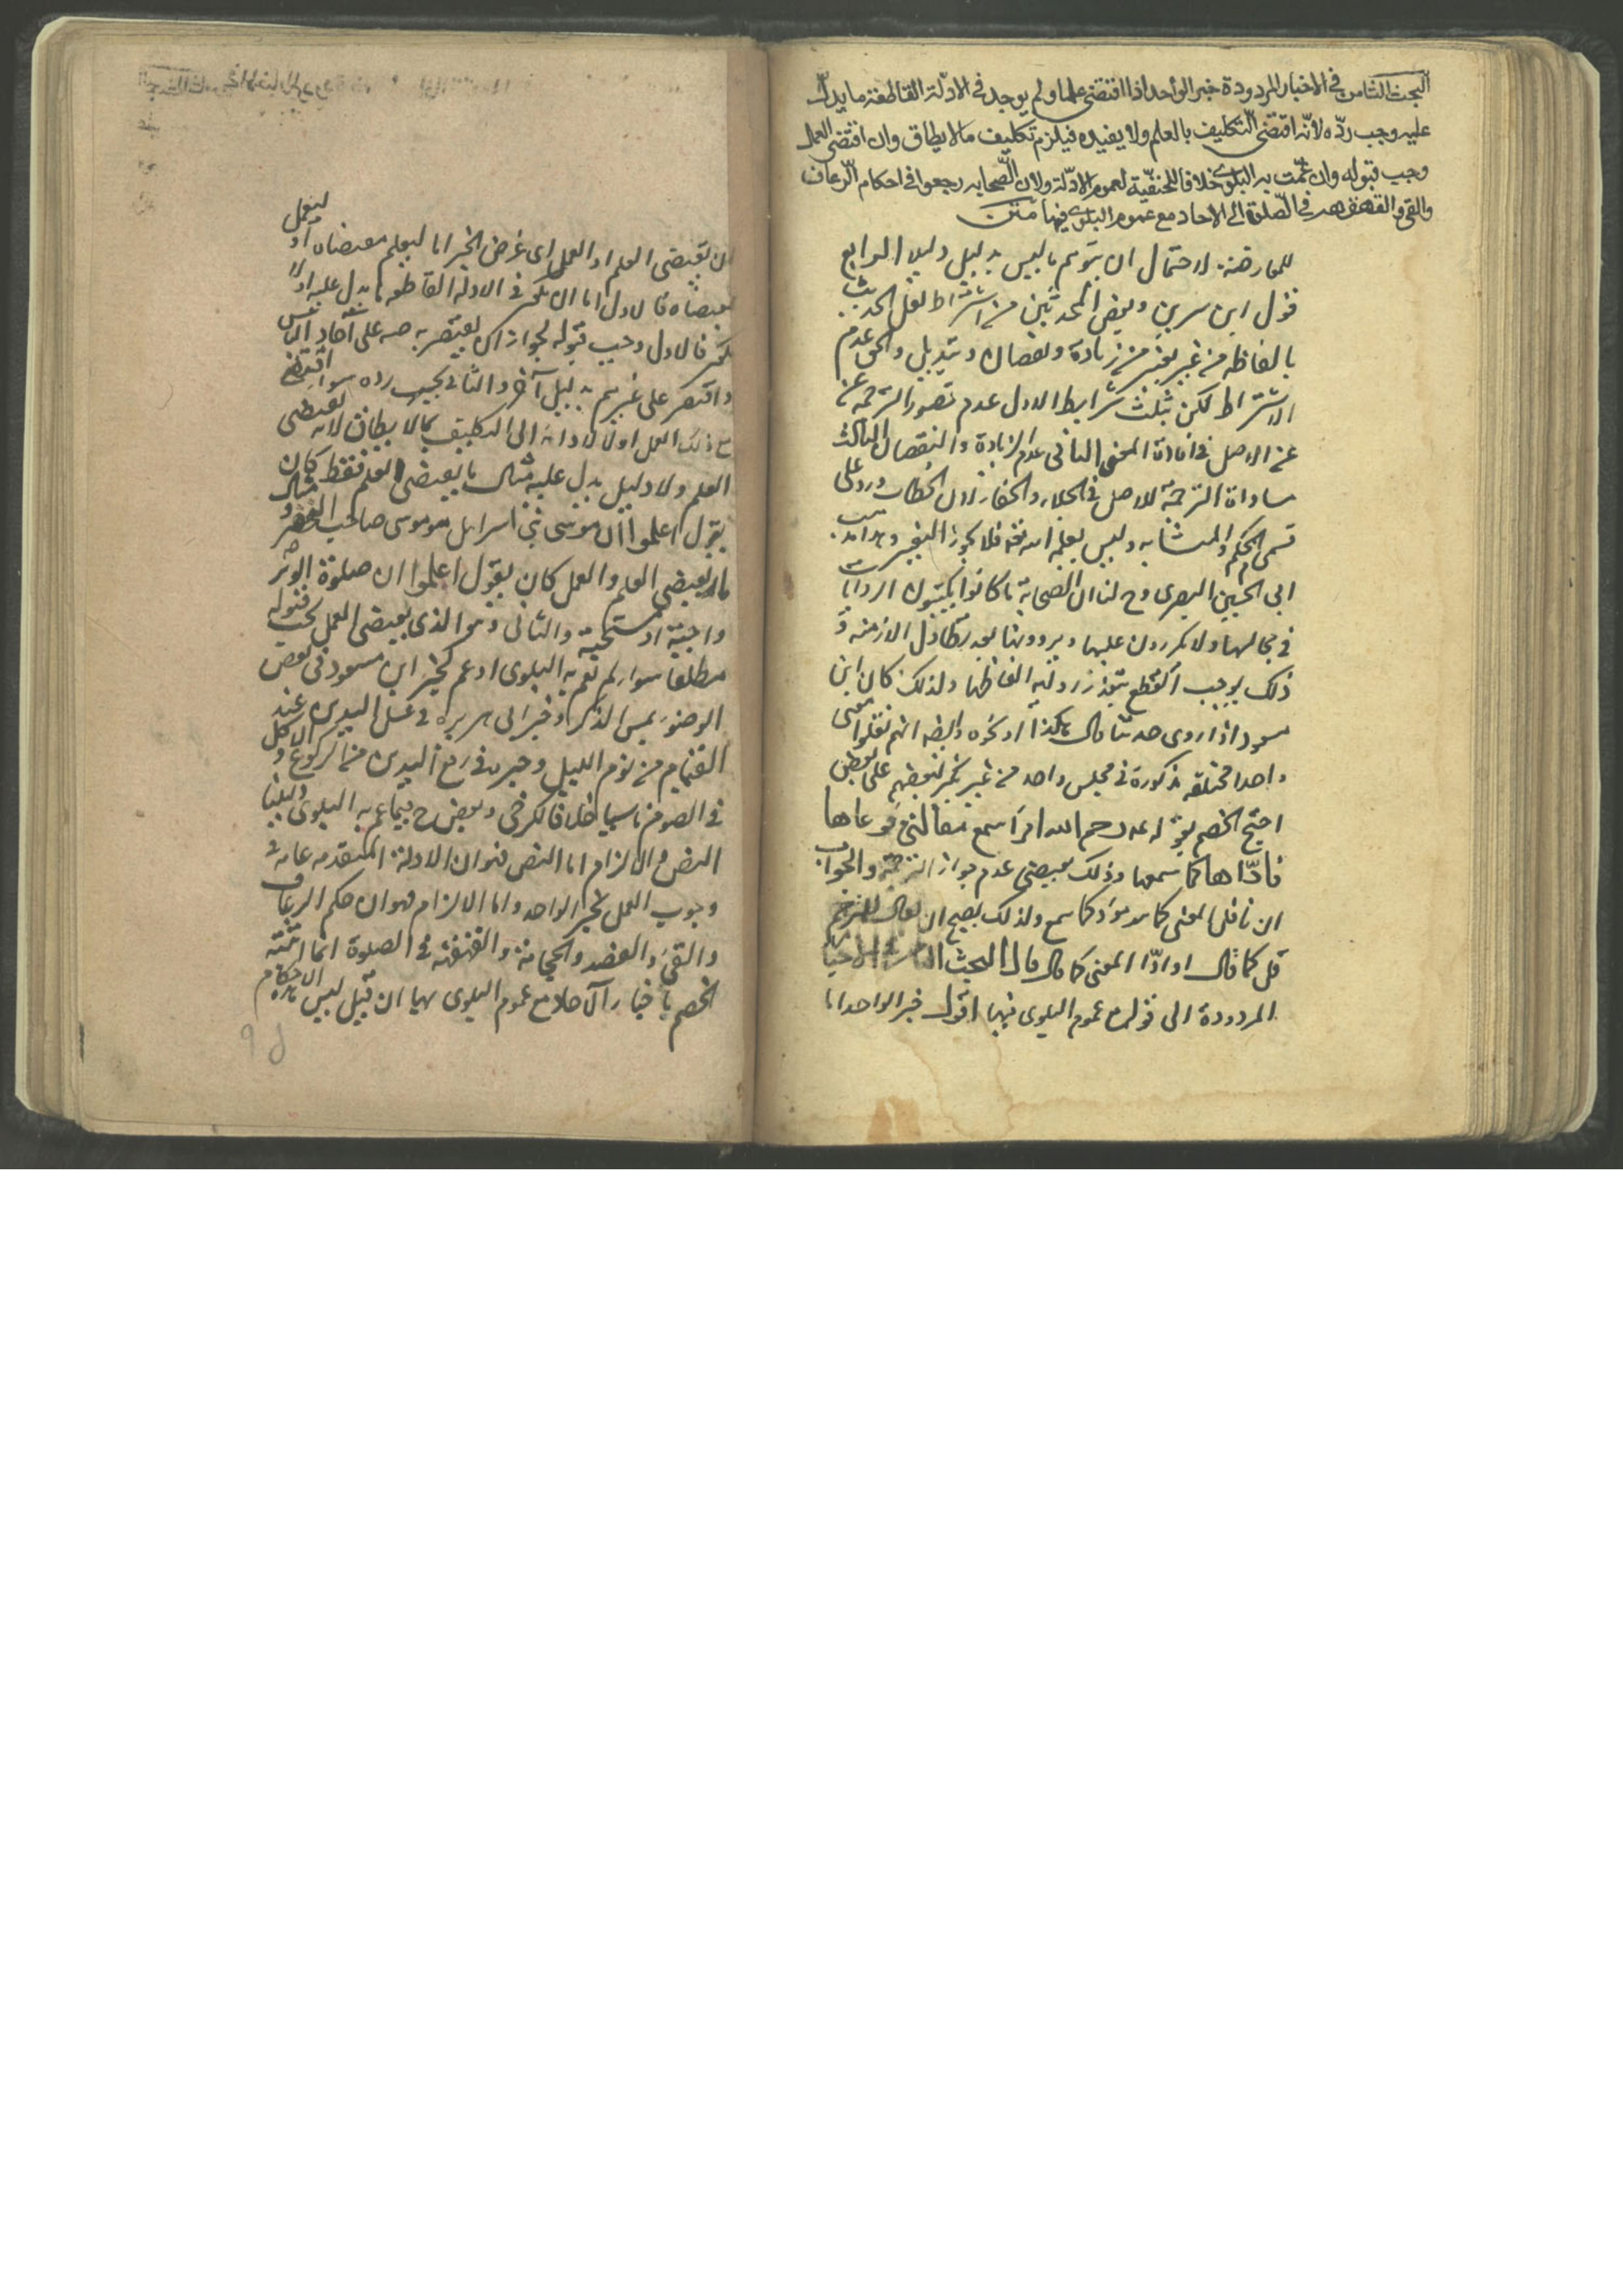 البحث الثامن في الاخبار المردودة خبر الواحد اذا اقتضى علما ولم يوجد في الادلة القاطعة ما يدل
عليه وجب ردّه لانّه اقتضى التكليف بالعلم ولا يفيده فيلزم تكليف ما لا يطاق وان اقتضى العمل
وجب قبوله وان عمّت به البلوى خلافا للحنفيّة لعموم الادلّة ولان الصّحابه رجعوا في احكام الرّعاف
والقى والقهقهه في الصّلوة الى الاحاد مع عموم البلوى فيها متن
للمعارضة لاحتمال ان يتوهم ما ليس بدليل دليلا الرابع
قول ابن سرين وبعض المحدثين من اشتراط نقل الحديث
بالفاظه من غير تغير من زيادة ونقصان وتبديل والحق عدم
الاشتراط لكن بثلث شرايط الاول عدم قصور الترجمة
عن الاصل في افادة المعنى الثاني عدم الزيادة والنقصان الثالث
مساواة الترجمة للاصل في الجلاء والخفاء لان الخطاب ورد على
قسمى المحكم والمتشابه وليس يعلمه فلا يجوز التغيير
ابى الحسين البصرى لنا ان الصحابة ما كانوا يكتبون الروايات
في مجالسها ولا يكررون عليها ويروونها بعد تطاول الازمنه و
ذلك يوجب القطع بتعذر روايه الفاظها ولذلك كان ابن
مسعود اذا روى حديثا قال هكذا او نحوه وايضا انهم نقلوا معنى
واحدا مختلفه مذكورة في مجلس واحد من غير نكير لبعضهم على بعض
احتج الخصم بقوله رحم الله امرأ سمع مقالتي فوعاها
فادّاها كما سمعها وذلك يقتضى عدم جواز الترجمة والجواب
ان ناقل المعنى كما هو مؤد كما سمع ولذلك يصح ان يقال للمترجم
المعنى كما قال قال البحث الثامن في الاخبار
المردودة الى قوله مع عموم البلوى فيها اقول خبر الواحد اما
ليعمل
ان يقتضى العلم او العمل اى غرض الخبر اما ليعلم مقتضاه او
بمقتضاه فالاول اما ان يكون في الادلة القاطعه ما يدل عليه اولا
فالاول وجب قبوله لجواز ان يقتصر به على آحاد الناس
واقتصر على غيرهم بدليل آخر والثانى يجب رده سواء اقتضى
مع ذلك العمل اولا لادائه الى التكليف بما لا يطاق لانه يقتضى
العلم ولا دليل يدل عليه مثال ما يقتضى العلم فقط كان
يقول اعلموا ان موسى بنى اسرايل هو موسى صاحب الخضر و
ما يقتضى العلم والعمل كان يقول اعلموا ان صلوة الوتر
واجبة او مستحبة والثانى وهو الذى يقتضى العمل يجب قبوله
مطلقا سواء لم تعم به البلوى او عم كخبر ابن مسعود في نقض
الوضوء بمس الذكر وخبر ابى هريره في غسل اليدين عند
القيام من نوم الليل وخبره في رفع اليدين من الركوع
خلافا للكرخى وبعض ح فيما عم به البلوى
النص والالزام اما النص فهو ان الادلة المتقدمه عامه في
وجوب العمل بخبر الواحد واما الالزام فهو ان حكم الرعاف
والقئ والفصد والحجامة والقهقهة في الصلوة انما اثبته
الخصم باخبار الآحاد مع عموم البلوى بها ان قيل ليس هذه الاحكام